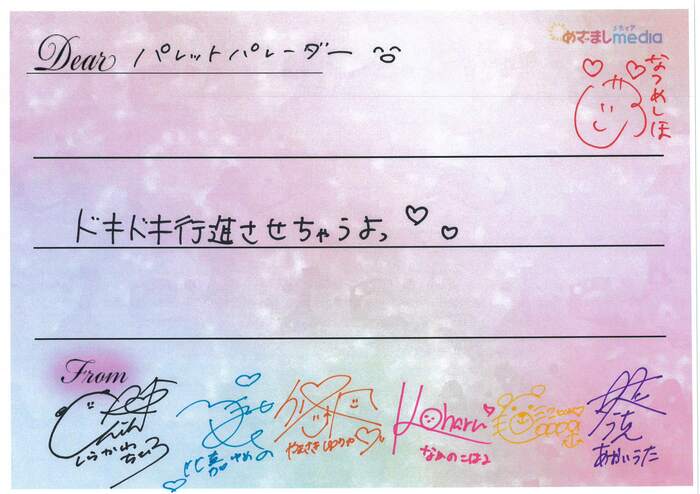 Dear パレットパレーダー
メディア
めざましmedia
なつめしほ
ドキドキ行進させちゃうよっ
From
しらかわちひろ
やまさきゆりや
Koharu
なめのこはる
あかいうた